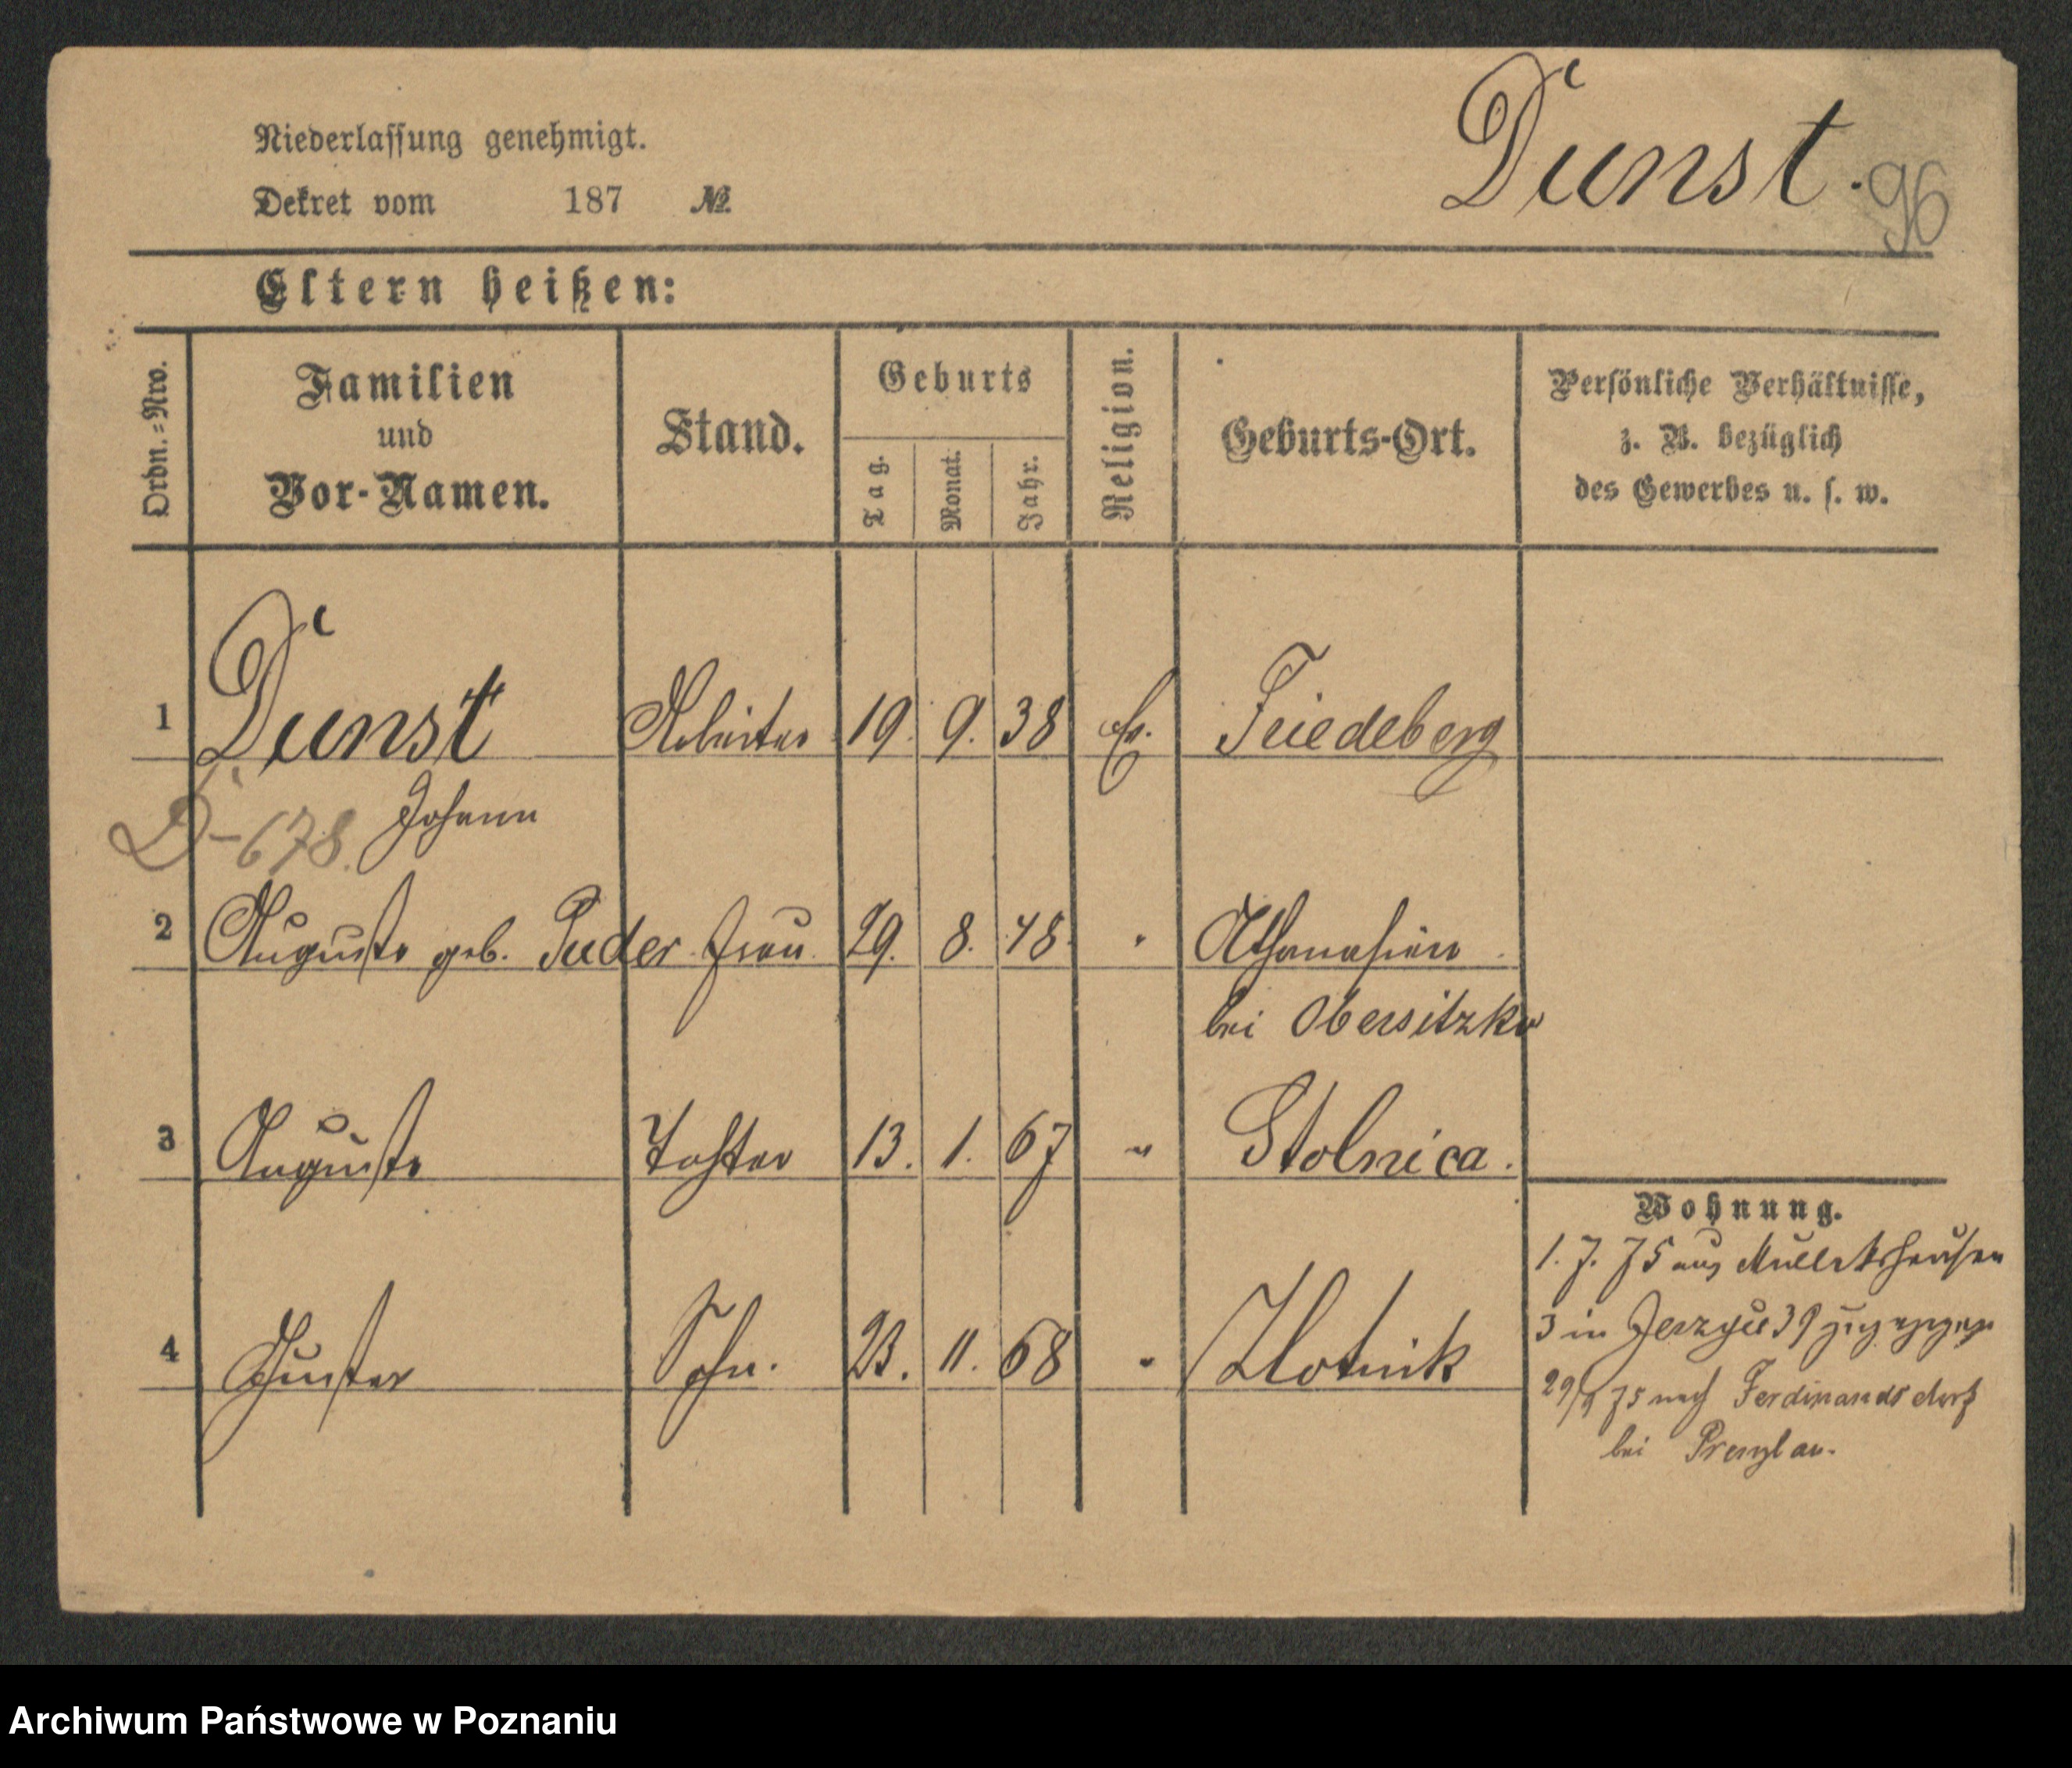 Niederlassung genehmigt.
Dekret vom 187 №
Dunst.
96
Eltern heißen:
Ordn.=Nro.
Familien
und
Vor-Namen.
Stand.
Geburts
Tag.
Monat.
Jahr.
Religion.
Geburts-Ort.
Persönliche Verhältnisse,
z. B. bezüglich
des Gewerbes u. s. w.
1 Dunst Arbeiter 19. 9. 38 Ev. Friedeberg
D-678. Johann
2 Auguste geb. Puder Frau 29. 8. 48 " Athanasien
bei Obersitzko
3 Auguste Tochter 13. 1. 67 " Stolnica.
4 Gustav Sohn. 23. 11. 68 " Zlotnik
Wohnung.
1. 7. 75 aus
3 in Jerzyce 39
29/9 75 nach Ferdinandsdorf
bei Prenzlau.
Archiwum Państwowe w Poznaniu